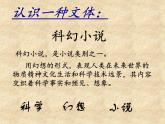 认识一种文体：
科幻小说
科幻小说，是小说类别之一。
用幻想的形式，表现人类在未来世界的
物质精神文化生活和科学技术远景，其内容
交织着科学事实和预见、想象。
科学 幻想 小说